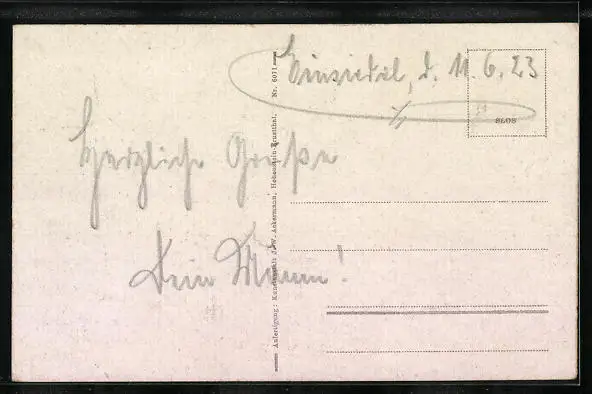 Einsiedel, d. 11.6.23
Herzliche Grüße
Dein Mann!
Anfertigung: Kunstanstalt J. W. Ackermann, Hohenstein-Ernstthal. Nr. 6071
8078